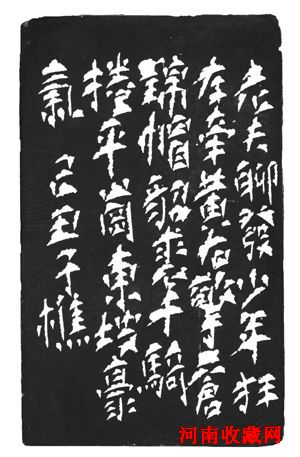 老夫聊發少年狂
左牽黃右擎蒼
錦帽貂裘千騎
捲平崗東坡豪
氣 己丑子樵
河南收藏网